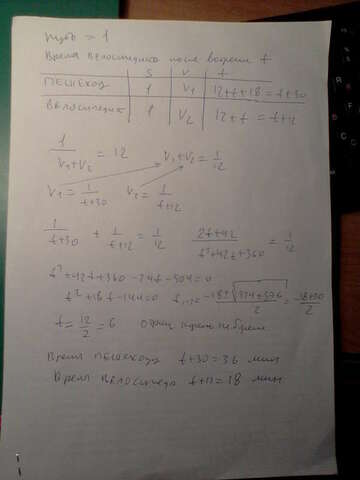 путь = 1
Время велосипедиста после встречи t
S V t
ПЕШЕХОД 1 V₁ 12+t+18 = t+30
ВЕЛОСИПЕДИСТ 1 V₂ 12+t = t+12
1/(V₁+V₂) = 12 V₁+V₂ = 1/12
V₁ = 1/(t+30) V₂ = 1/(t+12)
1/(t+30) + 1/(t+12) = 1/12 (2t+42)/(t²+42t+360) = 1/12
t²+42t+360-24t-504=0
t²+18t-144=0 t₁,₂ = (-18±√(324+576))/2 = (-18±30)/2
t = 12/2 = 6
Время пешехода t+30 = 36 мин
Время велосипеда t+12 = 18 мин